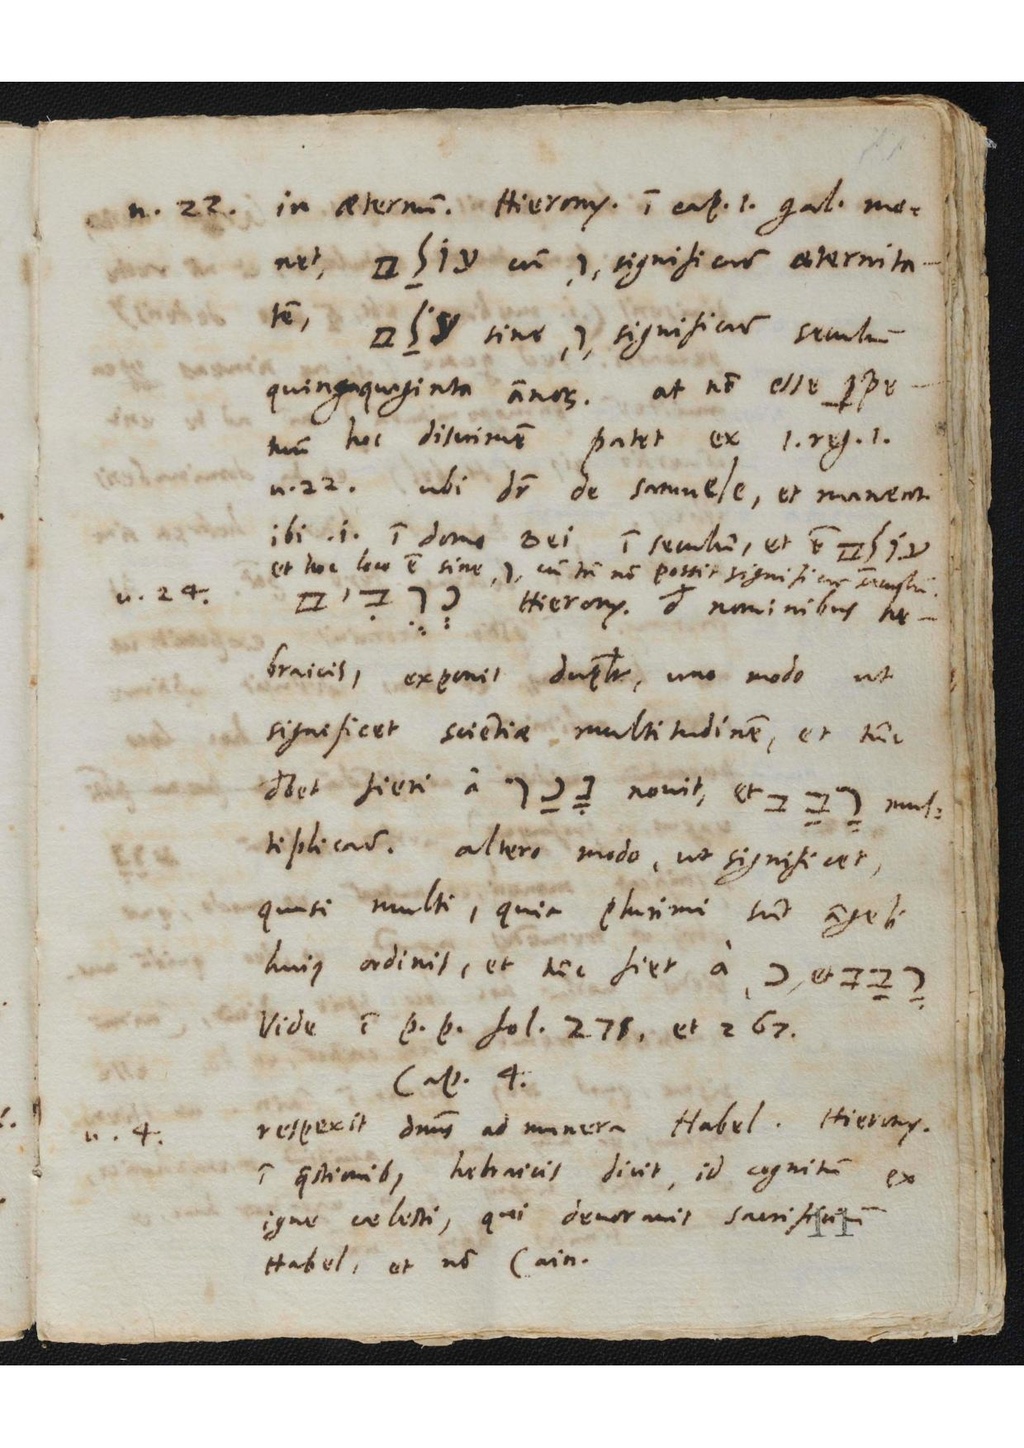 u. 22. in æternũ. Hierony. ĩ cap. 1. gal. mo=
net, עולם cũ ו, significare æternita-
tẽ, עלם sine ו, significare seculũ
quinquaginta ãnos. at nõ esse ꝑpe-
tuũ hoc discrimẽ patet ex 1. reg. 1.
u. 22. ubi dr̃ de samuele, et maneat
ibi .i. ĩ domo Dei ĩ seculũ, et ẽ עולם
et hoc loco ẽ sine ו, cũ tñ nõ possit significare
u. 24. כרבים Hierony. d̃ nominibus he-
braicis, exponit duplr̃, uno modo ut
significet sciẽtiæ multitudinẽ, et tũc
d̃bet fieri à נכר novit, et רבב mul=
tiplicare. altero modo, ut significet,
quasi multi, quia plurimi sũt ãgeli
huiꝰ ordinis, et tũc fiet à כ, et רבב
Vide ĩ p. p. fol. 278, et 267.
Cap. 4.
u. 4. respexit dñus ad munera Habel. Hierony.
ĩ q̃stionib, hebraicis dicit, id cognitũ ex
igne cælesti, qui devoravit sacrificiũ
Habel, et nõ Cain.